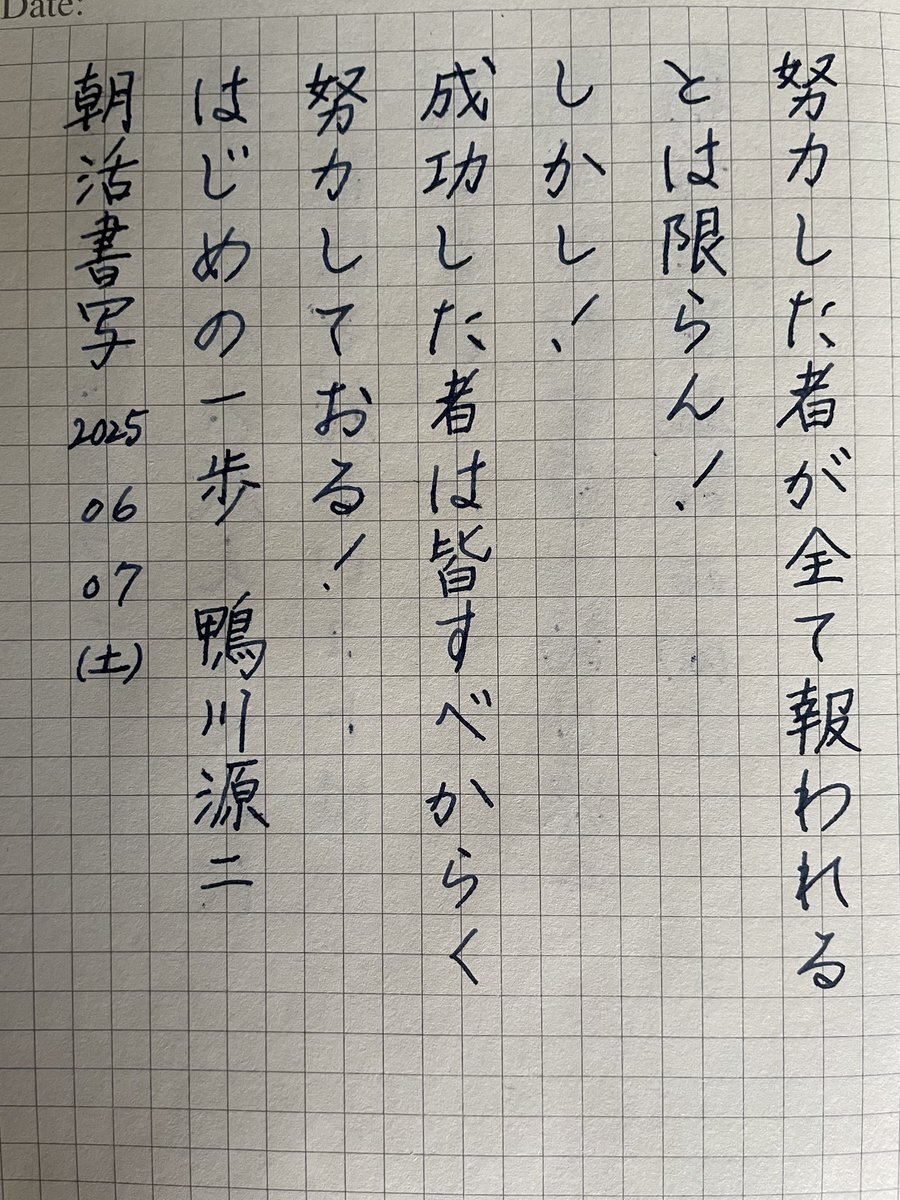 Date:
努力した者が全て報われる
とは限らん!
しかし!
成功した者は皆すべからく
努力しておる!
はじめの一歩 鴨川源二
朝活書写 2025 06 07 (土)